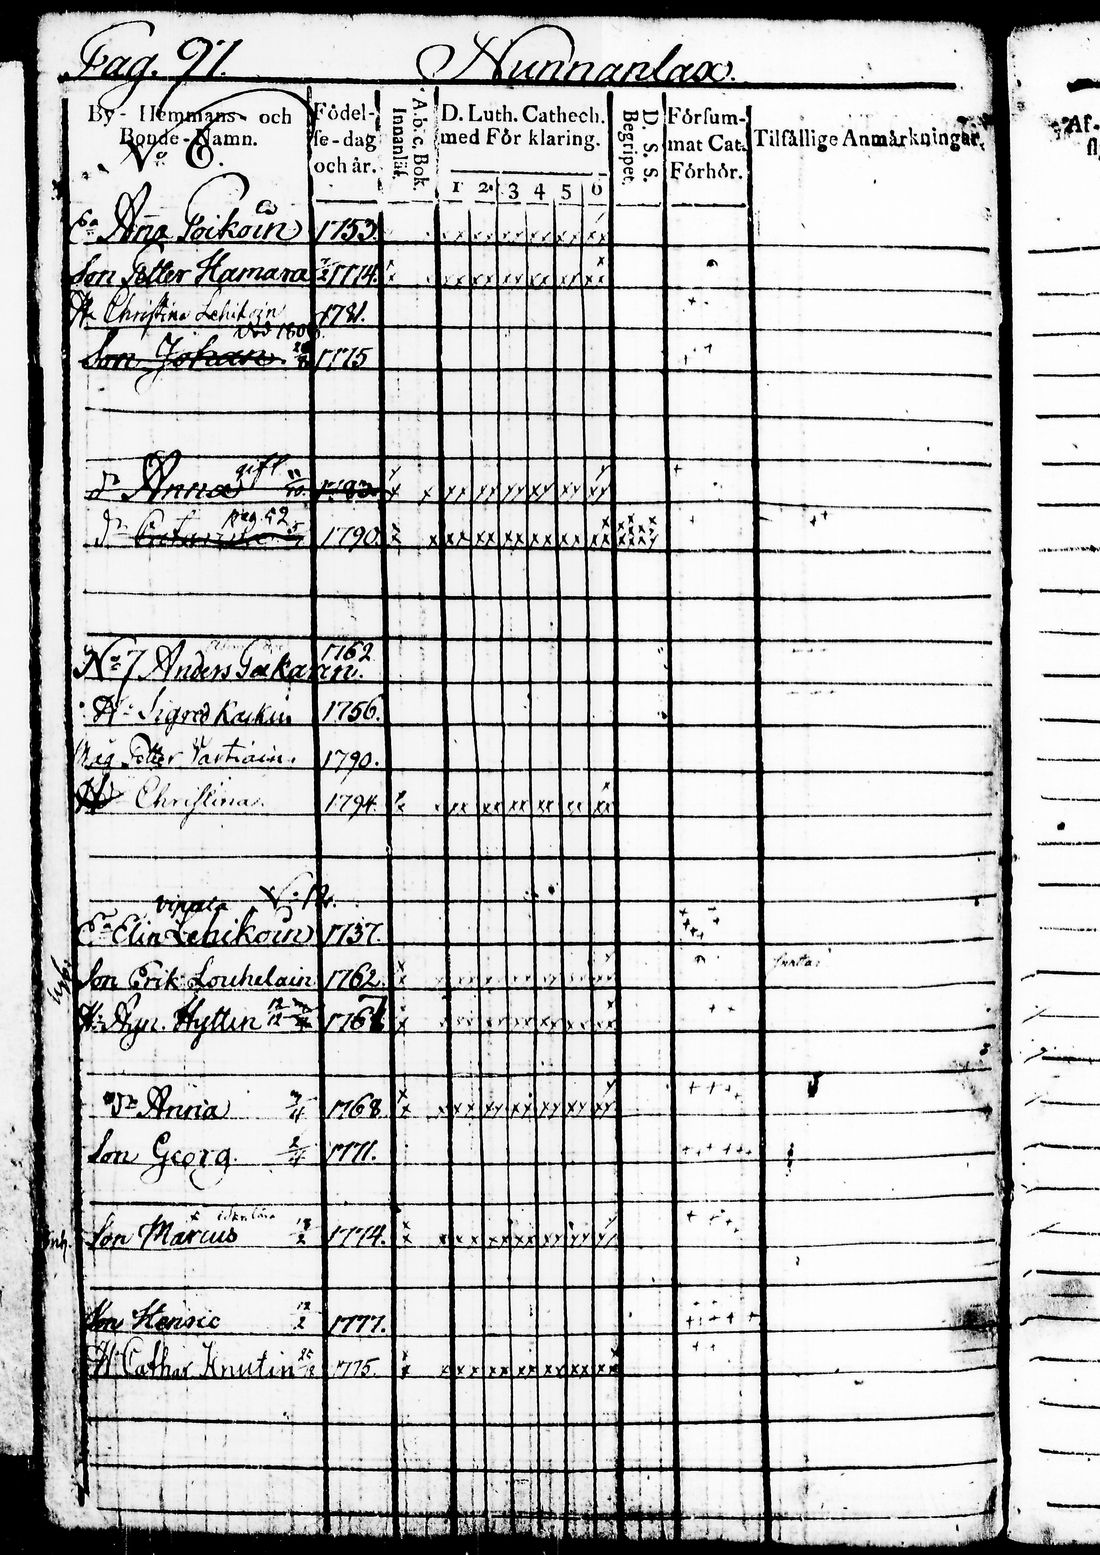 Pag. 97. Nunnanlax.
By- Hemmans- och Bonde-Namn.
Födel-se-dag och år.
Innanläs.
A.b.c. Bok.
D. Luth. Cathech. med För klaring.
1 2 3 4 5 6
D. S. S. Begripet.
Försum-mat Cat. Förhör.
Tilfällige Anmärkningar.
No 6.
Ea Anna Toikoin 1753.
Son Petter Hamara 1774.
Hu Christina Lehikoin 1781.
död 180
Son Johan 1775
gift
dr Anna 11/10 1783.
pag. 52
dr Catarina 1790.
1762
No 7 Anders Paakarin.
Hu Sigred Kaikin 1756.
Måg Petter Vartiain. 1790.
Hu Christina. 1794.
No 12.
Ea Elin Lehikoin 1737.
Son Erik Louhelain 1762.
Hu Agn. Hyttin 1767
dr Anna 1768
Son Georg. 1771.
Son Marcus 18/2 1774.
Inh.
Son Henric 12/2 1777.
Hu Cathar Knutin 1775.
Af-